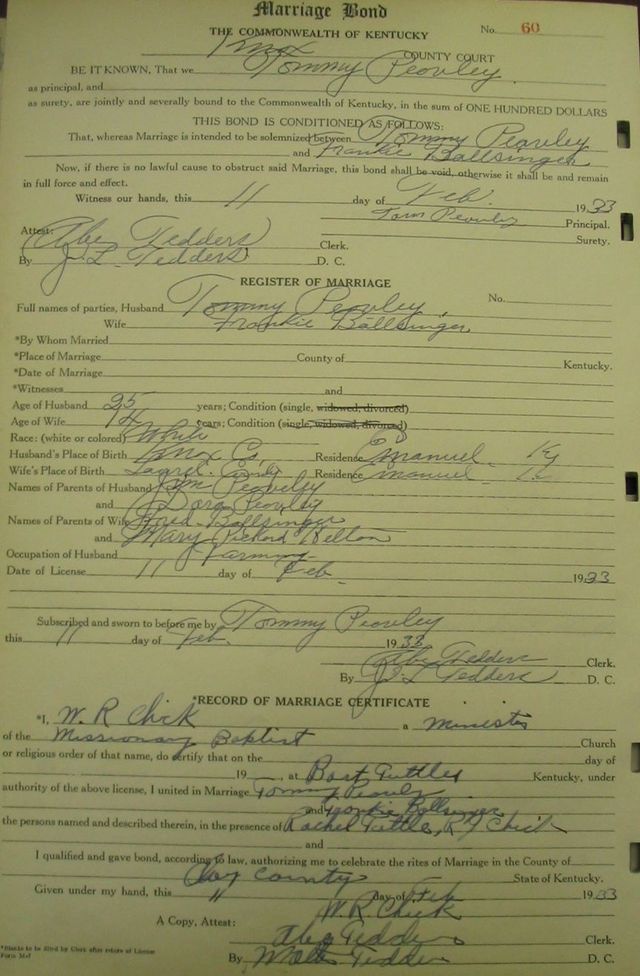 Marriage Bond
THE COMMONWEALTH OF KENTUCKY No. 60
Knox COUNTY COURT
BE IT KNOWN, That we Tommy Peovley
as principal, and
as surety, are jointly and severally bound to the Commonwealth of Kentucky, in the sum of ONE HUNDRED DOLLARS
THIS BOND IS CONDITIONED AS FOLLOWS:
That, whereas Marriage is intended to be solemnized between Tommy Peovley
and Frankie Ballsinger
Now, if there is no lawful cause to obstruct said Marriage, this bond shall be void, otherwise it shall be and remain
in full force and effect.
Witness our hands, this 11 day of Feb. 1933
Tom Peovley Principal.
Attest: Abe Tedders Clerk. Surety.
By J. L. Tedders D. C.
REGISTER OF MARRIAGE
Full names of parties, Husband Tommy Peovley No.
Wife Frankie Ballsinger
*By Whom Married
*Place of Marriage County of Kentucky.
*Date of Marriage
*Witnesses and
Age of Husband 25 years; Condition (single, widowed, divorced)
Age of Wife 14 years; Condition (single, widowed, divorced)
Race: (white or colored) White
Husband's Place of Birth Knox Co. Residence Emanuel Ky
Wife's Place of Birth Laurel Residence Emanuel
Names of Parents of Husband Jim Peovley
and Dora Peovley
Names of Parents of Wife Ballsinger
and Mary Helton
Occupation of Husband Farming
Date of License 11 day of Feb. 1933
Subscribed and sworn to before me by Tommy Peovley
this 11 day of Feb. 1933
Abe Tedders Clerk.
By J. L. Tedders D. C.
*RECORD OF MARRIAGE CERTIFICATE
*I, W. R Chick a Minister
of the Missionary Baptist Church
or religious order of that name, do certify that on the day of
19 , at Tuttles Kentucky, under
authority of the above license, I united in Marriage Tommy Peovley
and Frankie Ballsinger
the persons named and described therein, in the presence of Rachel Tuttle, R Chick
and
I qualified and gave bond, according to law, authorizing me to celebrate the rites of Marriage in the County of
Clay County State of Kentucky.
Given under my hand, this 11 day of Feb 1933
W. R. Chick
A Copy, Attest:
Abe Tedders Clerk.
By Tedders D. C.
*Blanks to be filled by Clerk after return of License